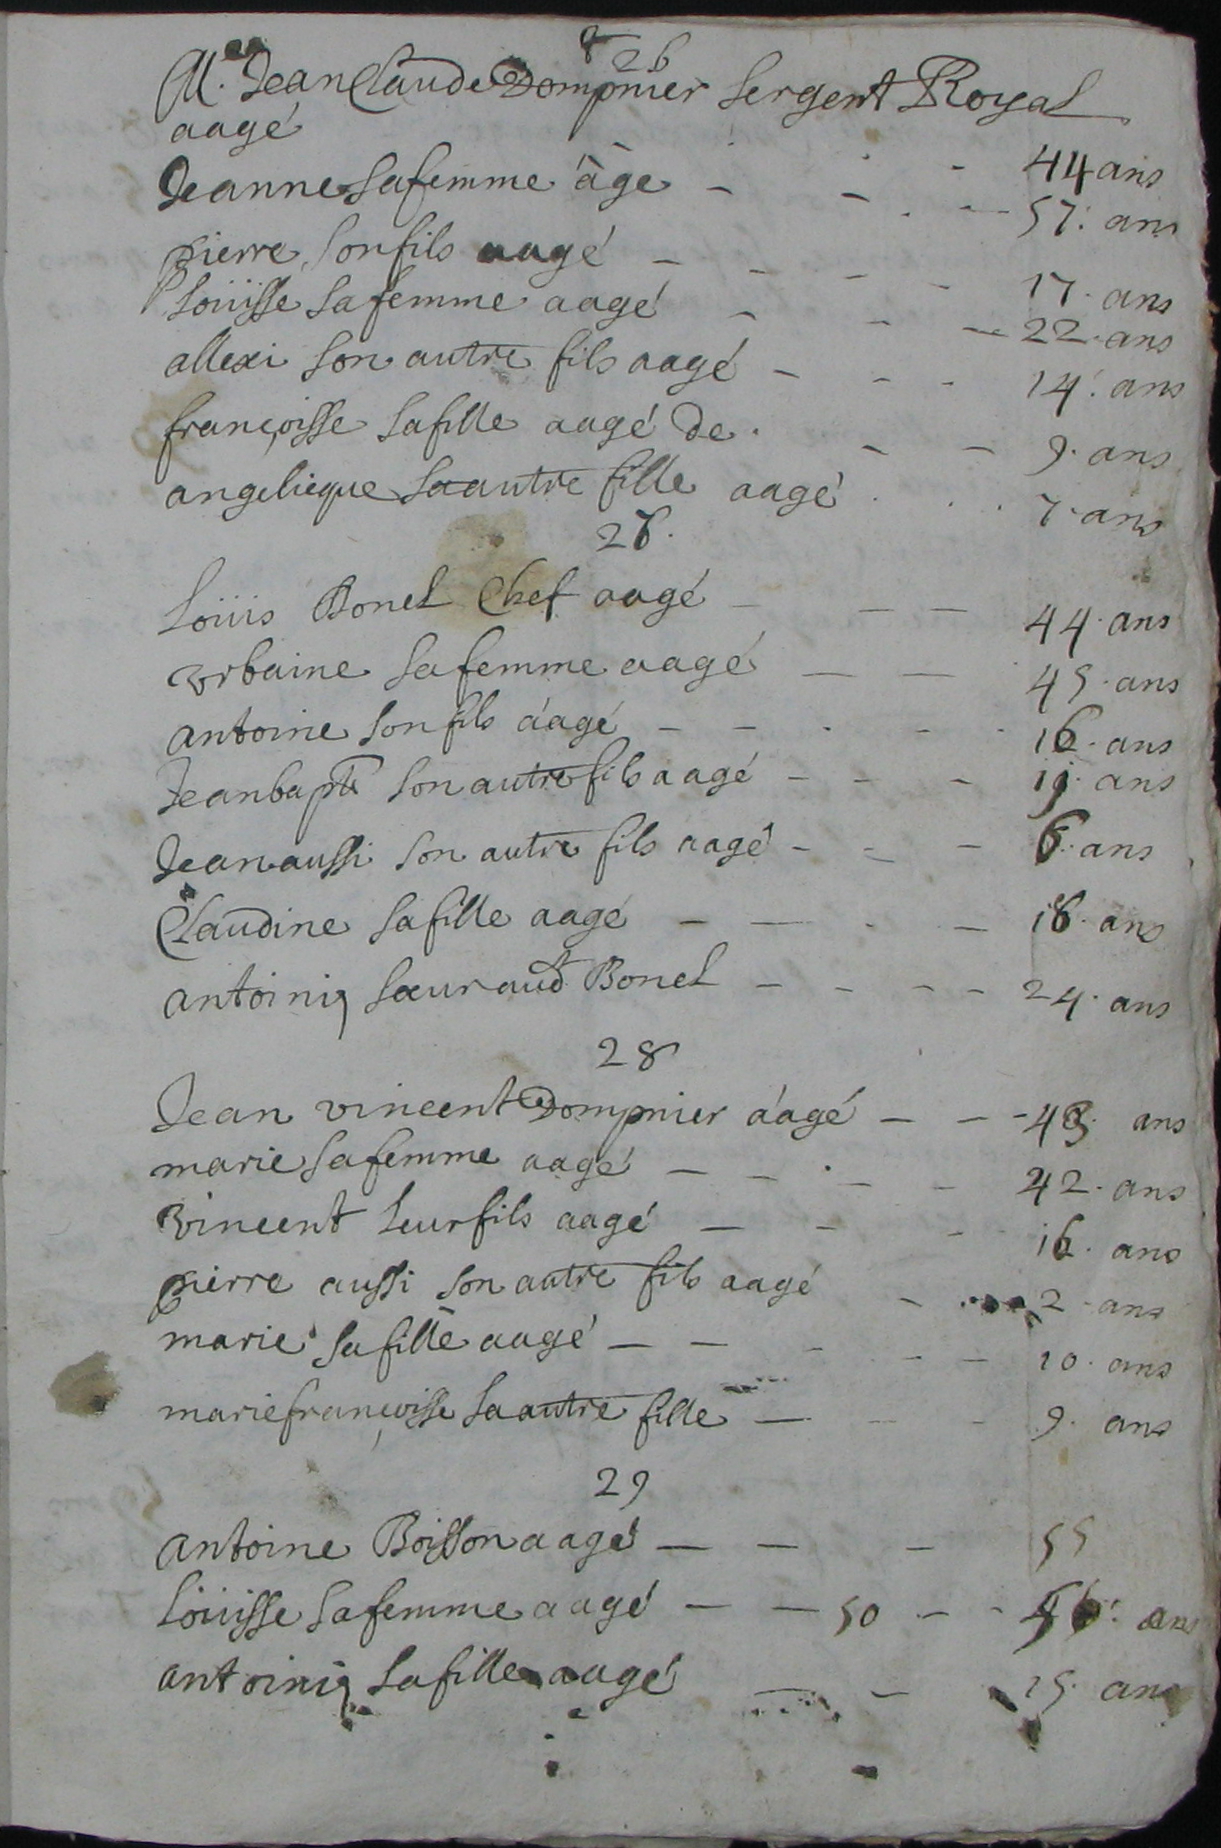 26
M.e Jean Claude Dompnier Sergent Royal
aagé - - - 44 ans
Jeanne sa femme àge - - - 57. ans
pierre son fils aagé - - - - 17. ans
Loüisse sa femme aagé - - - 22. ans
allexi son autre fils aagé - - - 14. ans
françoisse sa fille aagé de. - - 9. ans
angelieque sa autre fille aagé . . . 7. ans
27.
Loüis Bonel Chef aagé - - - 44. ans
vrbaine sa femme aagé - - 45. ans
antoine son fils áagé - - - - 16. ans
Jeanbapte son autre fils aagé - - - 19. ans
Jean aussi son autre fils aagé - - - 6. ans
Claudine sa fille aagé - - - - 18. ans
antoinie sœur aud Bonel - - - - 24. ans
28
Jean vincent Dompnier áagé - - - 43. ans
marie sa femme aagé - - - - 42. ans
vincent leur fils aagé - - - 16. ans
pierre aussi son autre fils aagé - 2 ans
marie sa fille aagé - - - - - 10. ans
mariefrançoisse sa autre fille - - - 9. ans
29
antoine Boisson aagé - - - 55
Loüisse sa femme aagé - - 50 - - ans
antoinie sa fille aagé - - 15. ans